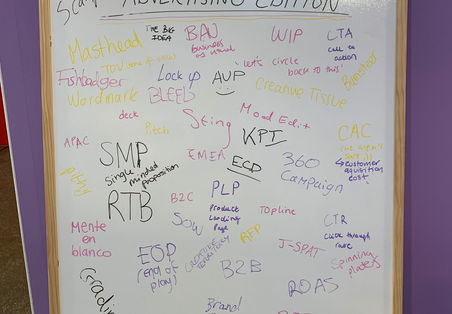 ADVERTISING EDITION
THE BIG
IDEA
BAU
business as usual
WIP
CTA
call to
action
Masthead
TOV
Lock up
AVP
"Let's circle
back to this"
Fishbadger
Wordmark
BLEED
Creative Tissue
deck
Pitch
Sting
Mood Edit
KPI
CAC
customer
aquisition
cost
APAC
SMP
Single
minded
proposition
EMEA
ECD
360
Campaign
RTB
B2C
PLP
Product
Landing
Page
TOPline
CTR
click through
rate
Mente
en
blanco
SOW
RFP
EOP
(end of
play)
CREATIVE
TERRITORY
B2B
J-SPAT
Spinning
plates
ROAS
Brand